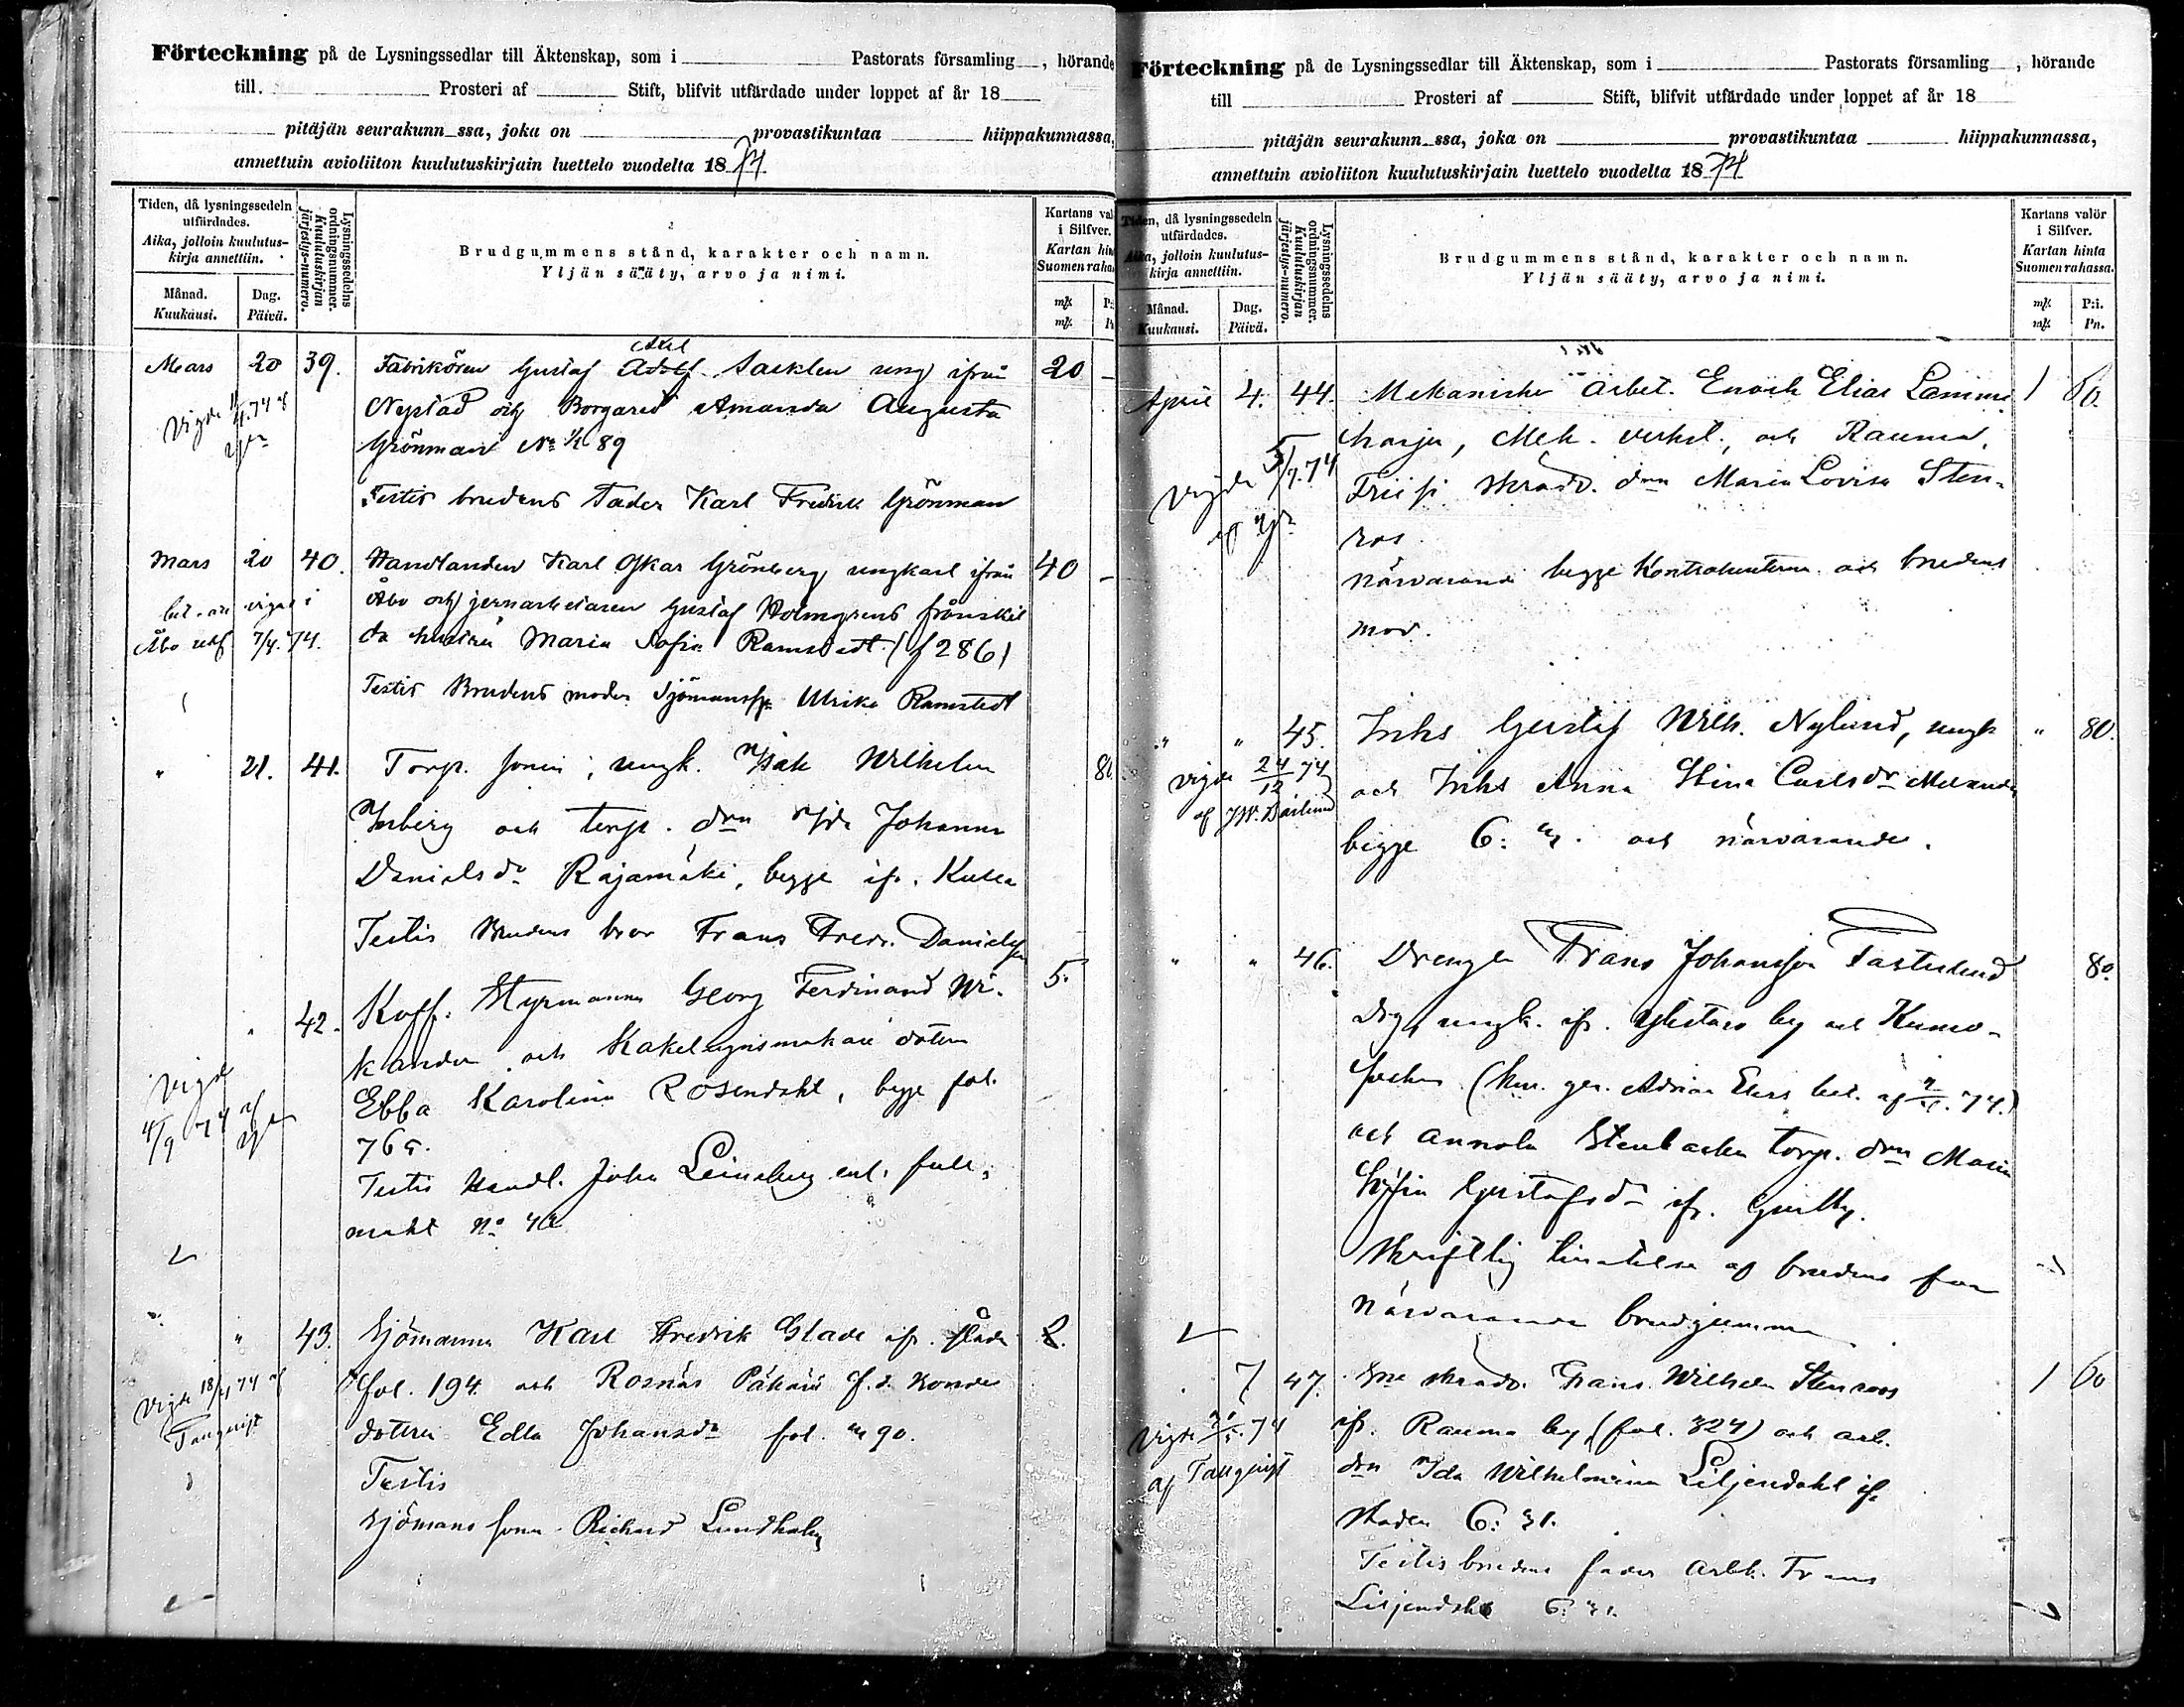 Förteckning på de Lysningssedlar till Äktenskap, som i Pastorats församling , hörande
till. Prosteri af Stift, blifvit utfärdade under loppet af år 18
pitäjän seurakunn ssa, joka on provastikuntaa hiippakunnassa,
annettuin avioliiton kuulutuskirjain luettelo vuodelta 1874
Tiden, då lysningssedeln utfärdades.
Aika, jolloin kuulutus-kirja annettiin.
Månad.
Kuukausi.
Dag.
Päivä.
Lysningssedelns ordningsnummer.
Kuulutuskirjan järjestys-numero.
Brudgummens stånd, karakter och namn.
Yljän sääty, arvo ja nimi.
Kartans val
i Silfver.
Kartan hin
Suomen raha
Mars 20 39. Fabrikören Gustaf Adolf Axel Sacklen ung ifrån 20 –
Nystad och Borgared Amanda Augusta
Grönman No ½ 89
Testis brudens fader Karl Fredrik Grönman
Mars 20 40. Handlanden Karl Oskar Grönberg ungkarl ifrån 40 –
Åbo och jernarbetaren Gustaf Holmgrens frånskil
da hustru Maria Sofia Ramstedt (f 286)
Åbo 7/4. 74.
Testis Brudens moder Sjömansh Ulrika Ramstedt
" 21. 41. Torp. sonen, ungk. Isak Wilhelm 80
Isberg och torp. drn Ida Johanna
Danielsdr Rajamäki, begge ifr. Kulla
Testis Brudens bror Frans Fredr. Danielss
" 42. Koff. Styrmannen Georg Ferdinand Wi- 5.
kander och Kakelugnsmakare dotern
Ebba Karolina Rosendahl, begge fol.
765.
Vigde
4/9 74 af
Testis Handl. John Leinberg enl. full-
makt No 42
" 43. Sjömannen Karl Fredrik Glade ifr. staden 2.
fol. 194. och Rosnäs Påkari f.d. Bonde
Vigde 18/4 74 af
Tangqvist
dotern Edla Johansdr fol. 90.
Testis
Sjömans sonen Richard Lundholm
Förteckning på de Lysningssedlar till Äktenskap, som i Pastorats församling , hörande
till Prosteri af Stift, blifvit utfärdade under loppet af år 18
pitäjän seurakunn ssa, joka on provastikuntaa hiippakunnassa,
annettuin avioliiton kuulutuskirjain luettelo vuodelta 1874
Tiden, då lysningssedeln utfärdades.
Aika, jolloin kuulutus-kirja annettiin.
Månad.
Kuukausi.
Dag.
Päivä.
Lysningssedelns ordningsnummer.
Kuulutuskirjan järjestys-numero.
Brudgummens stånd, karakter och namn.
Yljän sääty, arvo ja nimi.
Kartans valör
i Silfver.
Kartan hinta
Suomen rahassa.
mk P:i.
mk Pn.
April 4. 44. Mekaniske arbet. Enoch Elias Lammi 1 60.
harju, Mek. verkst., och Rauma,
Vigde 5/7.74
skradd. drn Maria Lovisa Sten-
ros.
närvarande begge Kontrahenterna och brudens
mor.
" " 45. Inhs Gustaf Wilh. Nylund, ungk " 80.
vigde 24/12 74
och Inhs Anna Stina Carlsdr Melander
begge 6: och närvarande.
" " 46. Drengen Frans Johansson 80.
ungk. ifr. by och Kumo-
och Annola Stenbacka torp. drn Maria
Sofia Gustafsdr ifr.
Skriftlig tillåtelse af brudens far
närvarande brudgummen
7. 47. skradd. Frans Wilhelm Stenroos 1 60
ifr. Rauma by (fol. 324) och arb.
af Tangqvist
drn Ida Wilhelmina Liljendahl ifr.
staden 6: 31.
Testis brudens fader arbk. Frans
Liljendahl 6: 31.